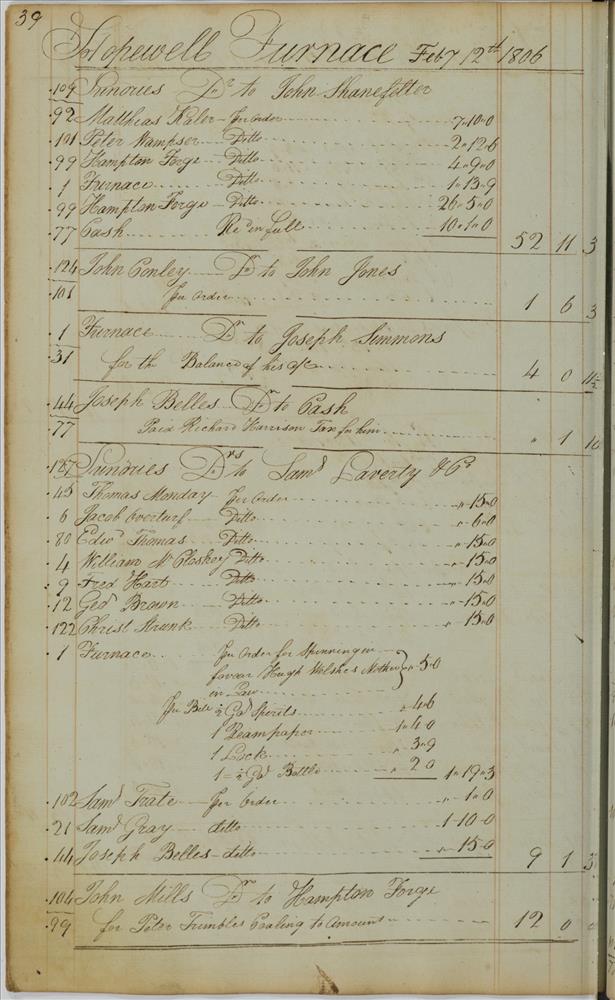 39
Hopewell Furnace Feby 12th 1806
109 Sundries Dr to John Shanefelter
92 Matthias Kaler - Per order 7"10"0
101 Peter Wampser - Ditto 2"12"6
99 Hampton Forge - Ditto 4"9"0
1 Furnace Ditto 1"13"9
99 Hampton Forge - Ditto 26"5"0
77 Cash Recd in full 10"1"0 52 11 3
124 John Conley Dr to John Jones
101 Per Order 1 6 3
1 Furnace Dr to Joseph Simmons
31 for the Balance of his a/c 4 0 11½
44 Joseph Belles Dr to Cash
77 Paid Richard Harrison Tax for him " 1 10
127 Sundries Drs to Saml Laverty & Co
45 Thomas Monday - Per Order "15"0
6 Jacob Overturf - Ditto "6"0
80 Edwd Thomas - Ditto "15"0
4 William McCloskey Ditto "15"0
9 Fred Hart Ditto "15"0
12 Geo Brown Ditto "15"0
122 Christ Strunk Ditto "15"0
1 Furnace Per Order for Spinning in
favour Hugh Welshes Mother "5"0
in Law
Per Bill ½ Gal Spirits "4"6
1 Ream paper 1"4"0
1 Lock "3"9
1 = ½ Gal Bottle " 2 0 1"19"3
102 Saml Trate Per Order "1"0
21 Saml Gray ditto 1-10-0
44 Joseph Belles - ditto "15"0 9 1 3
104 John Mills Dr to Hampton Forge
99 for Peter Trumbles Coaling to Amount 12 0